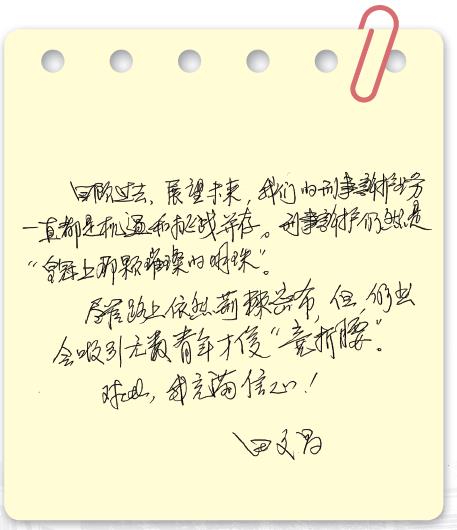 回顾过去，展望未来，我们的刑事辩护业务
一直都是机遇和挑战并存。刑事辩护仍然是
“皇冠上那颗璀璨的明珠”。
尽管路上依然荆棘密布，但，仍
会吸引无数青年才俊“竞折腰”。
对此，我充满信心！
田文昌